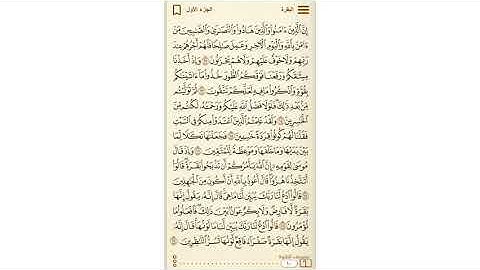 البقرة
الجزء الأول
إِنَّ ٱلَّذِينَ ءَامَنُوا۟ وَٱلَّذِينَ هَادُوا۟ وَٱلنَّصَٰرَىٰ وَٱلصَّٰبِـِٔينَ مَنْ
ءَامَنَ بِٱللَّهِ وَٱلْيَوْمِ ٱلْءَاخِرِ وَعَمِلَ صَٰلِحًا فَلَهُمْ أَجْرُهُمْ عِندَ
رَبِّهِمْ وَلَا خَوْفٌ عَلَيْهِمْ وَلَا هُمْ يَحْزَنُونَ ٦٢ وَإِذْ أَخَذْنَا
مِيثَٰقَكُمْ وَرَفَعْنَا فَوْقَكُمُ ٱلطُّورَ خُذُوا۟ مَآ ءَاتَيْنَٰكُم
بِقُوَّةٍ وَٱذْكُرُوا۟ مَا فِيهِ لَعَلَّكُمْ تَتَّقُونَ ٦٣ ثُمَّ تَوَلَّيْتُم
مِّنۢ بَعْدِ ذَٰلِكَ فَلَوْلَا فَضْلُ ٱللَّهِ عَلَيْكُمْ وَرَحْمَتُهُۥ لَكُنتُم مِّنَ
ٱلْخَٰسِرِينَ ٦٤ وَلَقَدْ عَلِمْتُمُ ٱلَّذِينَ ٱعْتَدَوْا۟ مِنكُمْ فِى ٱلسَّبْتِ
فَقُلْنَا لَهُمْ كُونُوا۟ قِرَدَةً خَٰسِـِٔينَ ٦٥ فَجَعَلْنَٰهَا نَكَٰلًا لِّمَا
بَيْنَ يَدَيْهَا وَمَا خَلْفَهَا وَمَوْعِظَةً لِّلْمُتَّقِينَ ٦٦ وَإِذْ قَالَ
مُوسَىٰ لِقَوْمِهِۦٓ إِنَّ ٱللَّهَ يَأْمُرُكُمْ أَن تَذْبَحُوا۟ بَقَرَةً قَالُوٓا۟
أَتَتَّخِذُنَا هُزُوًا قَالَ أَعُوذُ بِٱللَّهِ أَنْ أَكُونَ مِنَ ٱلْجَٰهِلِينَ
٦٧ قَالُوا۟ ٱدْعُ لَنَا رَبَّكَ يُبَيِّن لَّنَا مَا هِىَ قَالَ إِنَّهُۥ يَقُولُ إِنَّهَا
بَقَرَةٌ لَّا فَارِضٌ وَلَا بِكْرٌ عَوَانٌۢ بَيْنَ ذَٰلِكَ فَٱفْعَلُوا۟ مَا
تُؤْمَرُونَ ٦٨ قَالُوا۟ ٱدْعُ لَنَا رَبَّكَ يُبَيِّن لَّنَا مَا لَوْنُهَا قَالَ إِنَّهُۥ
يَقُولُ إِنَّهَا بَقَرَةٌ صَفْرَآءُ فَاقِعٌ لَّوْنُهَا تَسُرُّ ٱلنَّٰظِرِينَ ٦٩
١٠